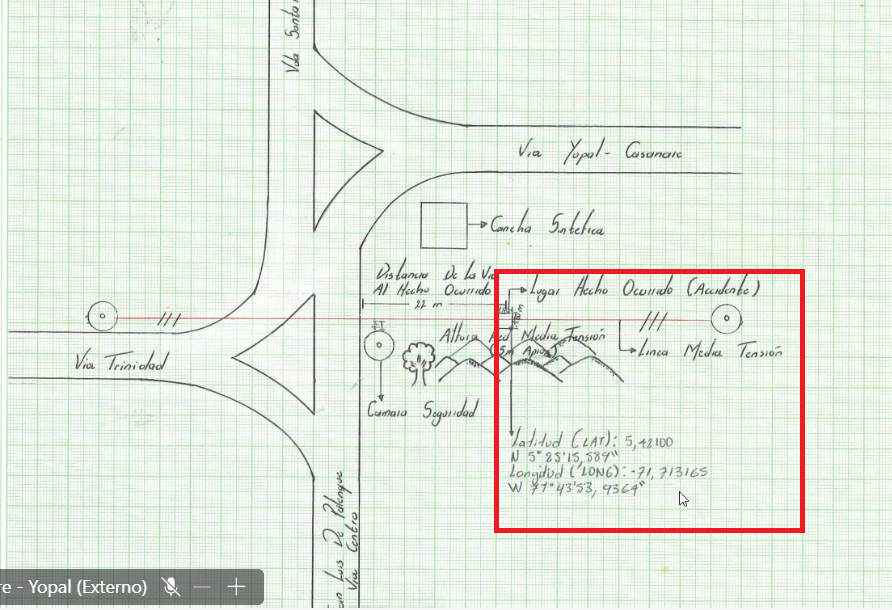 Vía Yopal - Casanare
Cancha Sintetica
Distancia De La Vía
Al Hecho Ocurrido
22 m
Lugar Hecho Ocurrido (Accidente)
Altura Red Media Tensión
Linea Media Tensión
Vía Trinidad
Camara Seguridad
Latitud (LAT): 5,42100
N 5° 25'15,589"
Longitud (LONG): -71,713165
W 71°43'53,9364"
Luis De Palenque
Vía Centro
re - Yopal (Externo)